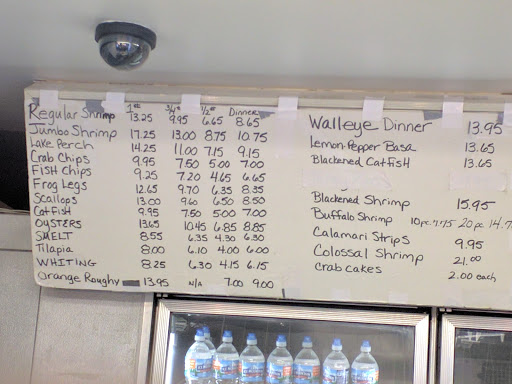 1# 3/4# 1/2# Dinner
Regular Shrimp 13.25 9.95 6.65 8.65
Jumbo Shrimp 17.25 13.00 8.75 10.75
Lake Perch 14.25 11.00 7.15 9.15
Crab Chips 9.95 7.50 5.00 7.00
Fish Chips 9.25 7.20 4.65 6.65
Frog Legs 12.65 9.70 6.35 8.35
Scallops 13.00 9.60 6.50 8.50
Catfish 9.95 7.50 5.00 7.00
OYSTERS 13.65 10.45 6.85 8.85
SMELT 8.55 6.35 4.30 6.30
Tilapia 8.00 6.10 4.00 6.00
WHITING 8.25 6.30 4.15 6.15
Orange Roughy 13.95 N/A 7.00 9.00
Walleye Dinner 13.95
Lemon-Pepper Basa 13.65
Blackened Catfish 13.65
Blackened Shrimp 15.95
Buffalo Shrimp 10pc. 20pc
Calamari Strips 9.95
Colossal Shrimp 21.00
crab cakes 2.00 each